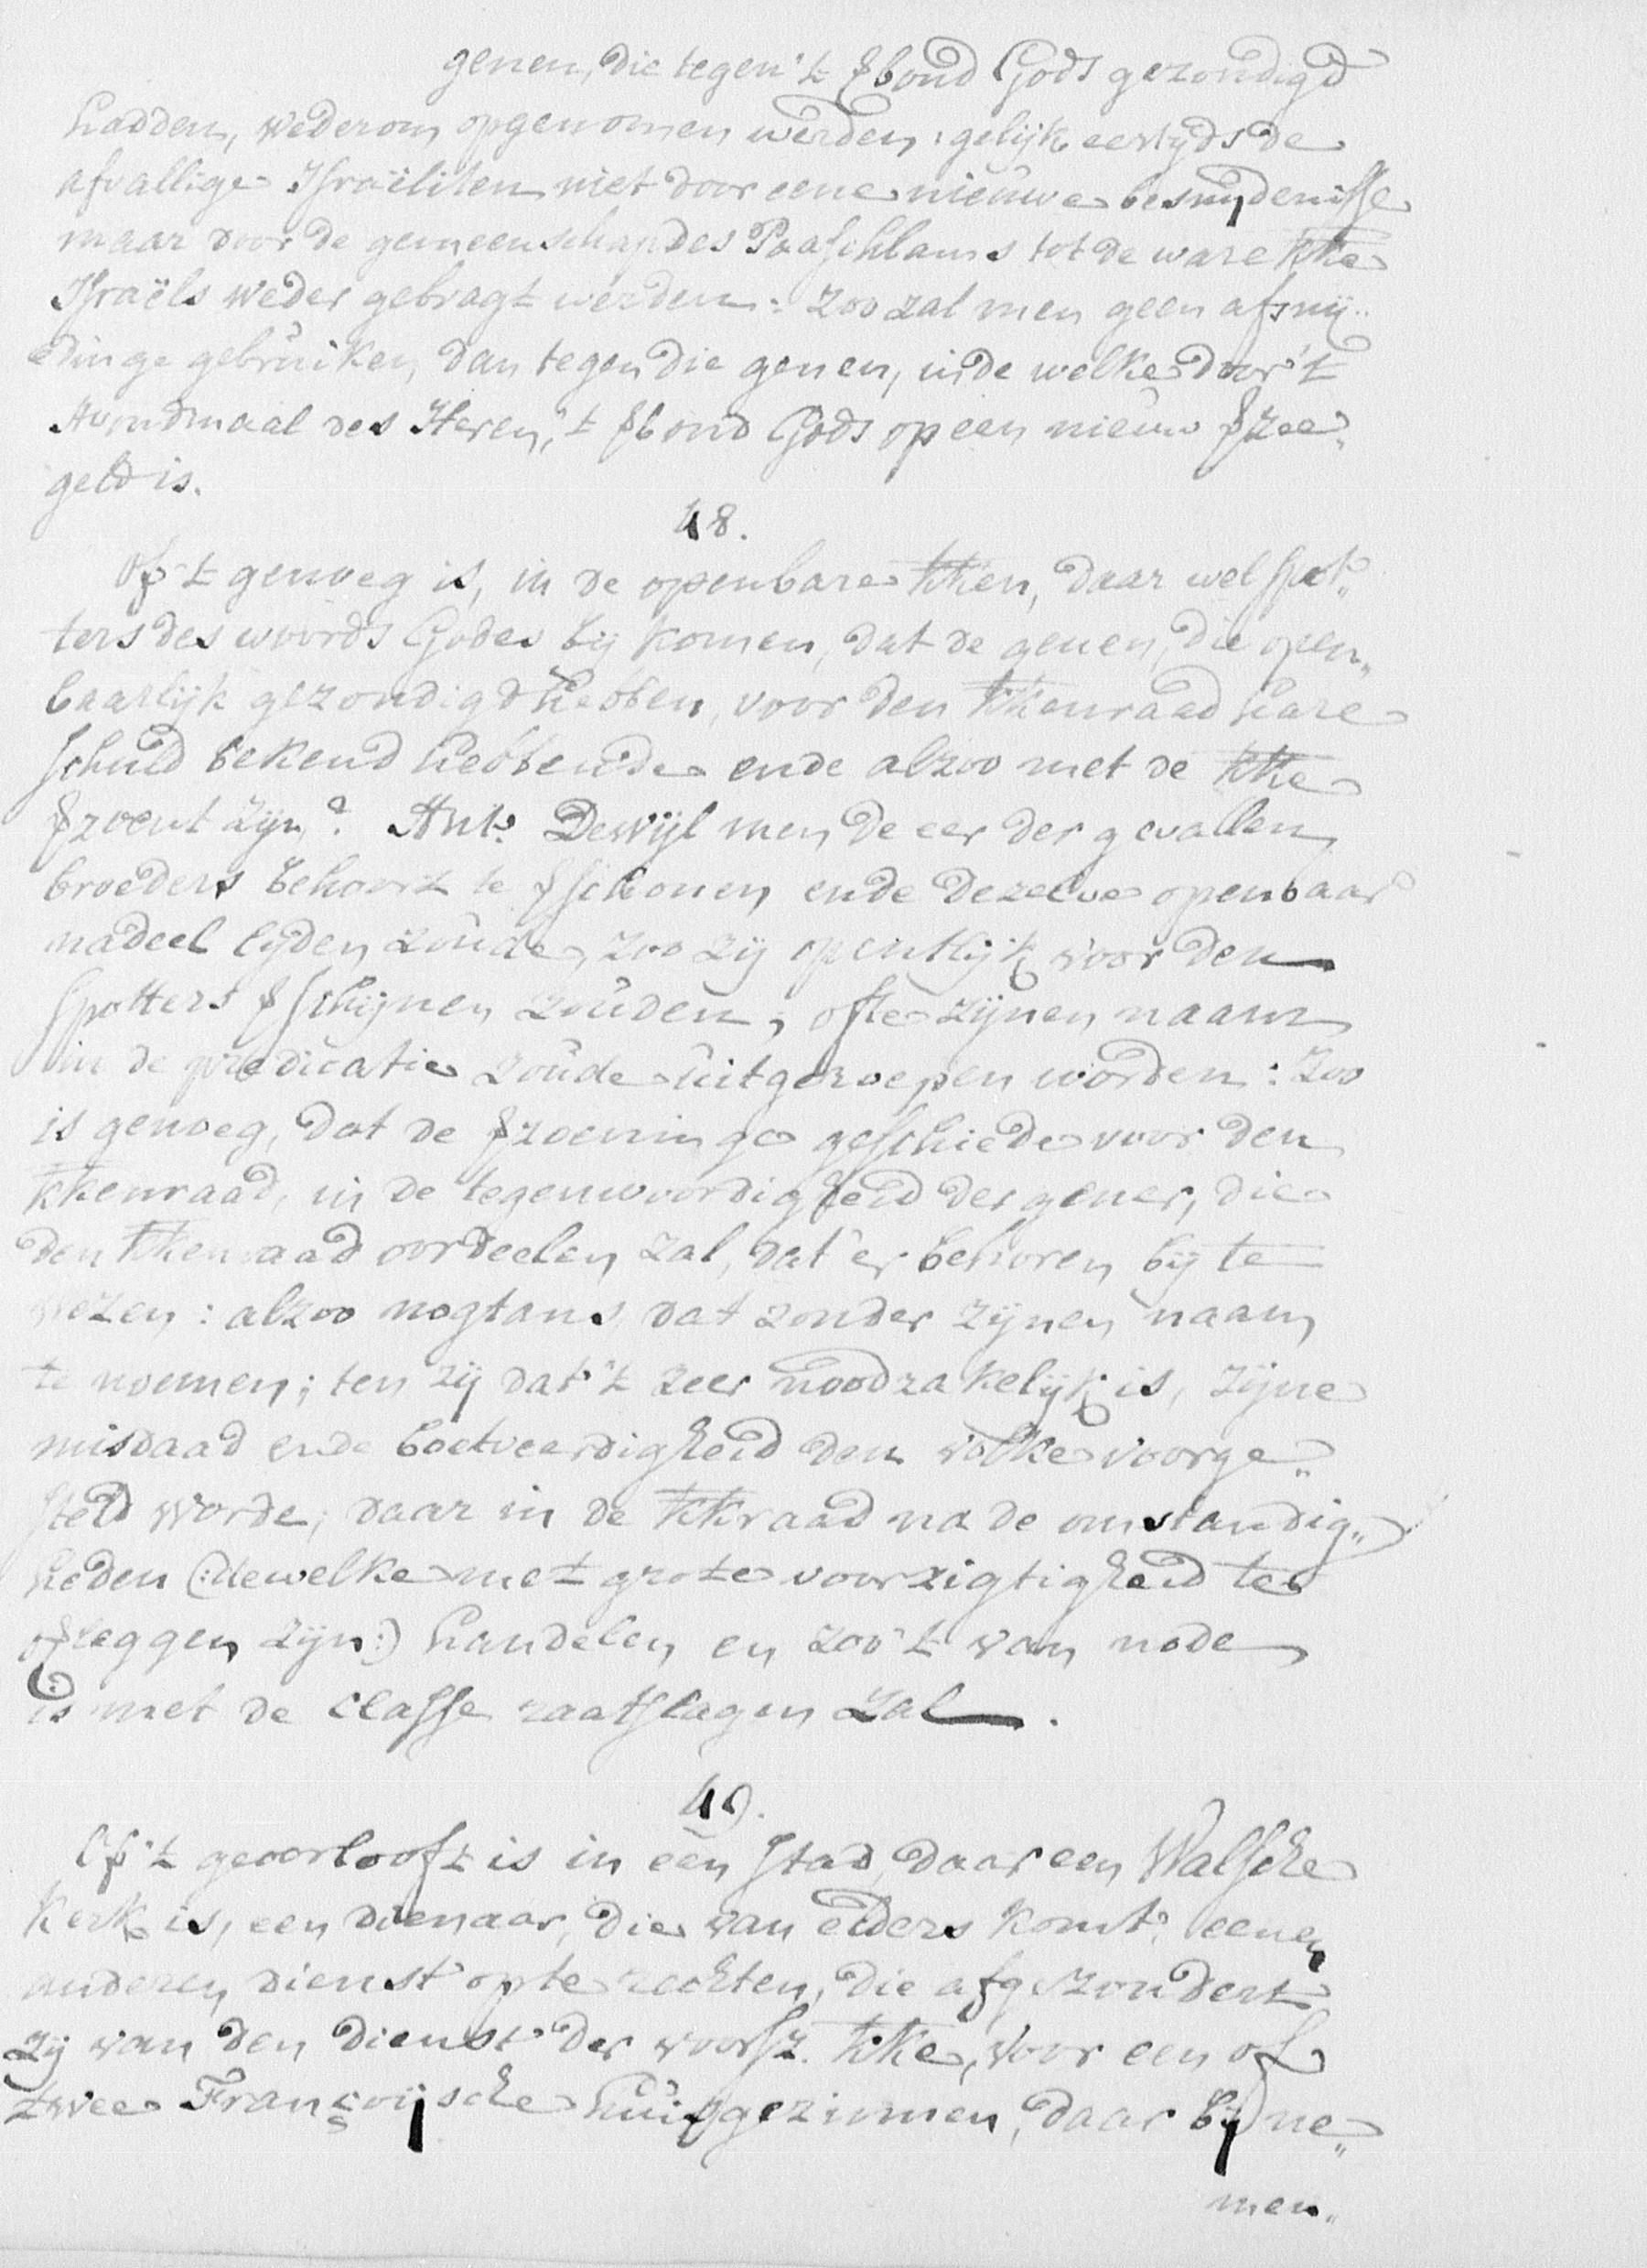 genen, die tegen 't ꝟbond Gods gezondigd
hadden, wederom opgenomen werden: gelijk eertijds de
afvallige Israëliten niet door eene nieuwe besnijdenisse
maar door de gemeenschap des Paaschlams tot de ware kke
Israëls weder gebragt werden: zoo zal men geen afsnij„
dinge gebruiken, dan tegen die genen, in de welke door 't
Avondmaal des Heren, 't ꝟbond Gods op een nieuw ꝟzee„
geld is.
48.
Of 't genoeg is, in de openbare kken, daar wel spot„
ters des woords Godes bij komen, dat de genen, die open„
baarlijk gezondigd hebben, voor den kkenraad hare
schuld bekend hebbende ende alzoo met de kke
ꝟzoent zijn? Antw. Dewijl men de eer der gevallen
broeders behoort te ꝟschonen ende dezelve openbaar
nadeel lijden zoude, zoo zij opentlijk voor den
spotters ꝟschijnen zouden, ofte zijnen naam
in de predicatie zoude uitgeroepen worden: Zoo
is genoeg, dat de ꝟzoeninge geschiede voor den
kkenraad, in de tegenwoordigheid der gener, die
den kkenraad oordeelen zal, dat er behoren bij te
wezen: alzoo nogtans dat zonder zijnen naam
te noemen; ten zij dat 't zeer noodzakelijk is, zijne
misdaad ende boetveerdigheid den volke voorge„
steld worde; daar in de kkraad na de omstandig„
heden (:dewelke met grote voorzigtigheid te
ꝟleggen zijn:) handelen en zoo 't van node
is met de classe raatslagen zal.
49.
Of 't geoorlooft is in een stad, daar een Walsche
Kerk is, een dienaar, die van elders komt, eenen
anderen dienst op te rechten, die afgezondert
zij van den dienst der voorsz. kke, voor een of
twee Françoijsche huisgezinnen, daar bij ne„
men„